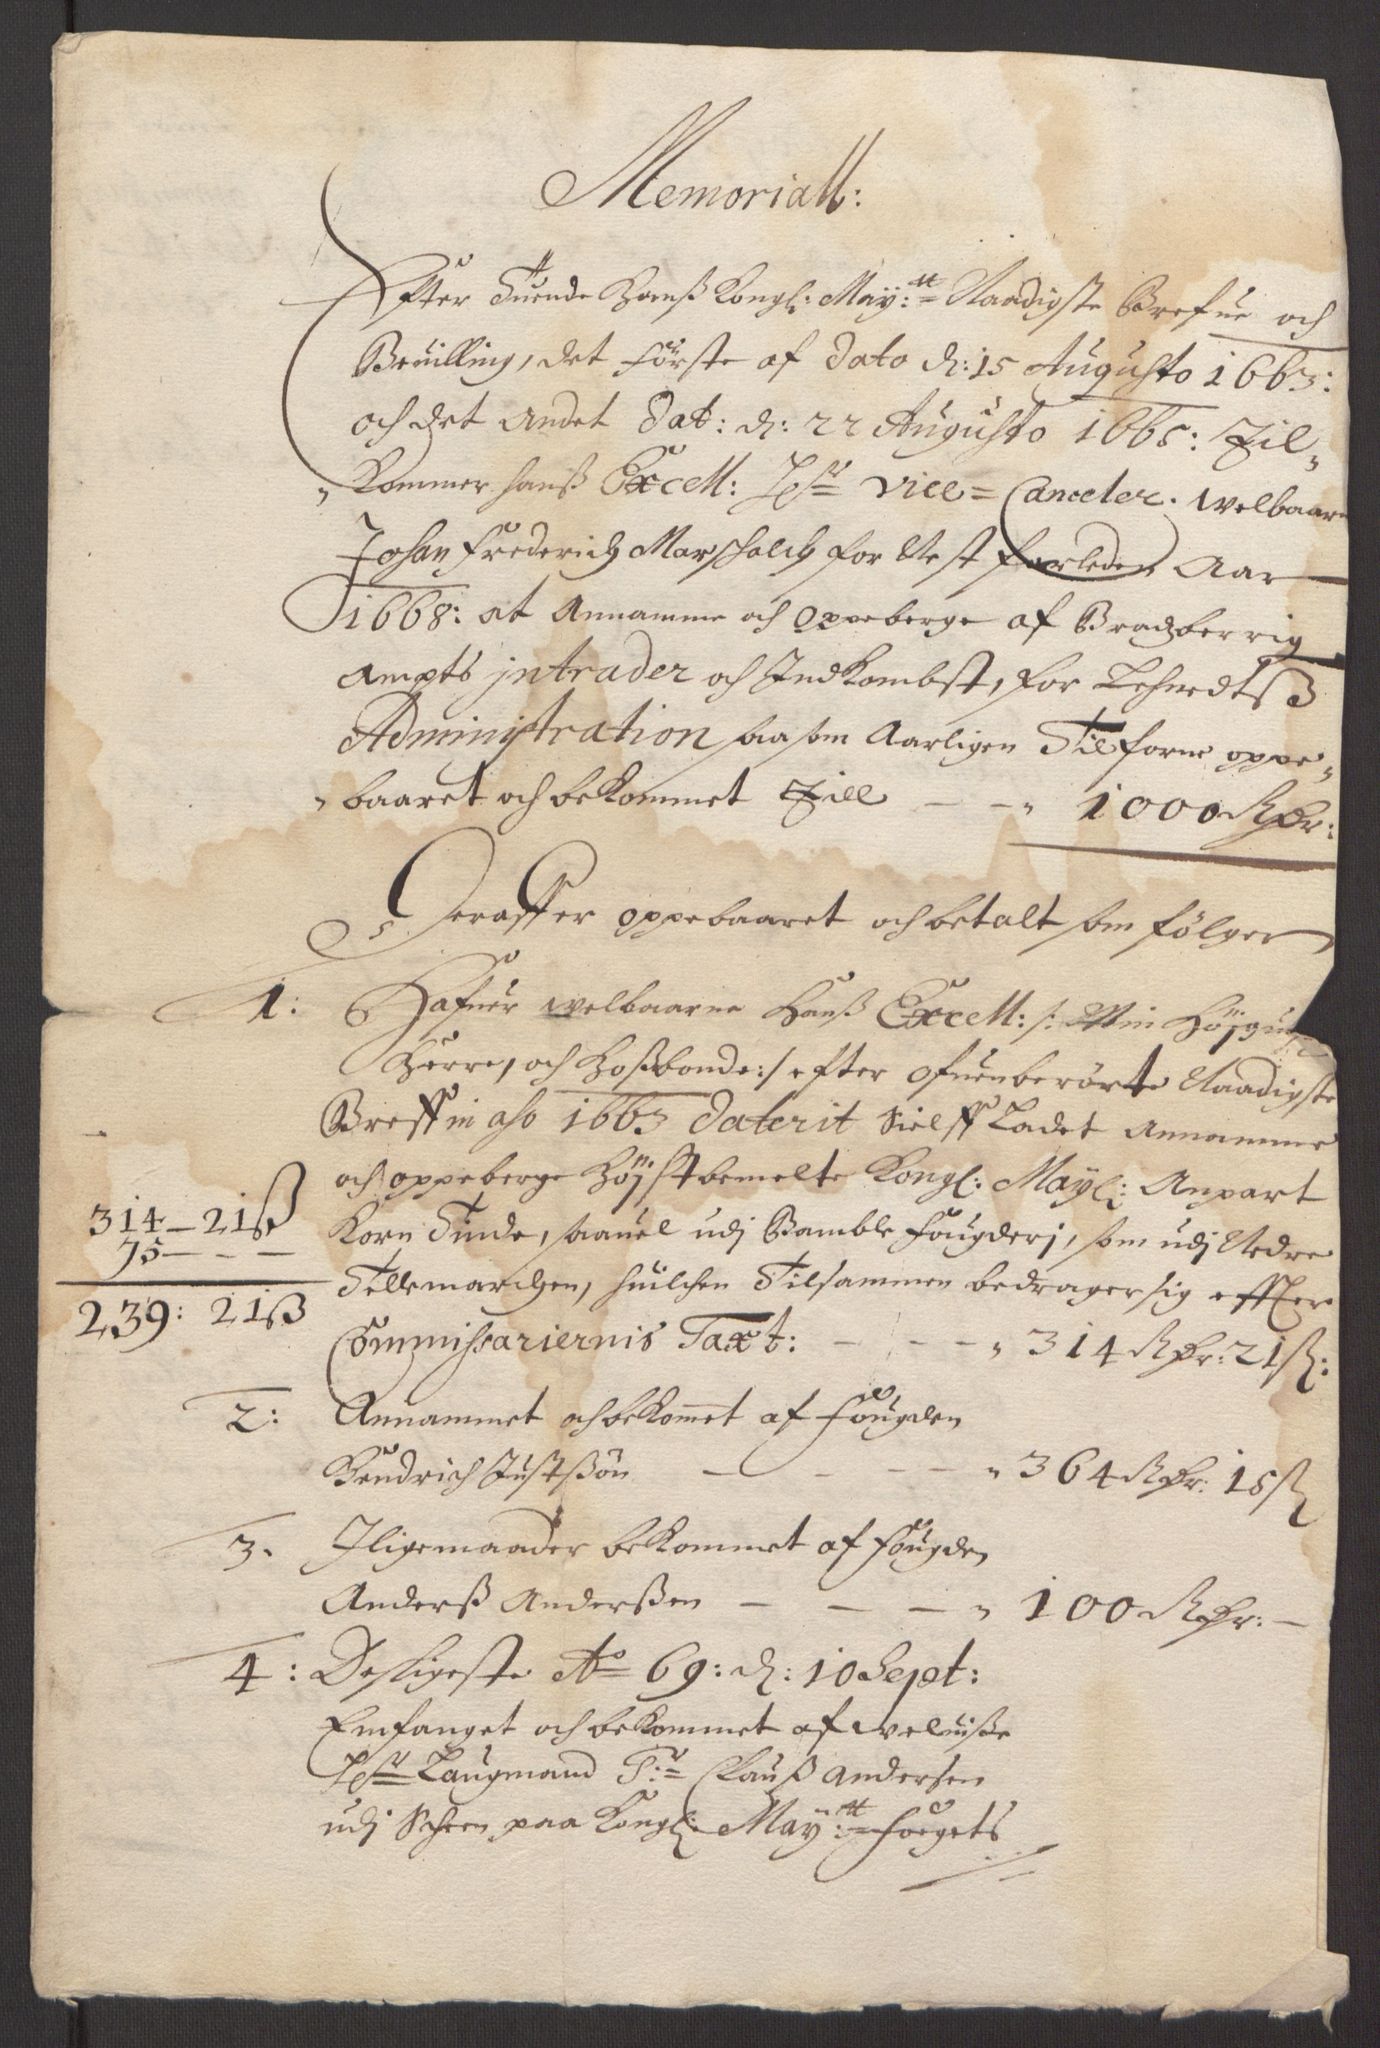 Memoriall:
Efter Tuende Hanß Kongl: May:tt Naadigste Brefue och
Beuilling, det første af dato d: 15 Augusto 1663:
och det Andet Dat: d: 22 Augusto 1665: Til„
„kommer hanß Excell: Hr Vice=Canceler. welbaarne
Johan Frederich Marschalch for Nest forleden Aar
1668: at Annamme och Oppeberge af Bradsberrig
Ampts jntrader och Indkombst, for Lehnedtß
Administration saasom Aarligen Tilforne oppe„
„baaret och bekommet Till — — „ 1000 Rdr:
Deraff er oppebaaret och betalt som følger
1: Hafuer welbaarne Hanß Excell: /: Min Høygun
Herre, och Hoßbonde:/ efter ofuenberørte Naadigste
Breff in Aho 1663 daterit sielff Ladet Annamme
och oppeberge Høystbemelte Kongl: Mayl: Anpart
Korn Tiinde, saauel udj Bamble Fougderj, som udj Nedre
Tellemarchen, huilchen Tilsammen bedrager sig effter
Commissariernis Taxt: — — — „ 314 Rdr: 21 ß:
314 — 21 ß
75 — — —
239: 21 ß
2: Annammet och bekommet af Fougden
Hendrich Justßøn — — — „ 364 Rdr: 15 ß
3. Jligemaader bekommet af Fougden
Anderß Anderßen — — — „ 100 Rdr: —
4: Desligeste Ao 69: d: 10 Sept:
Emfanget och bekommet af weluiße
Hr Laugmand Sr: Clauß Andersen
udj Scheen paa Kongl: May:tt Foegets